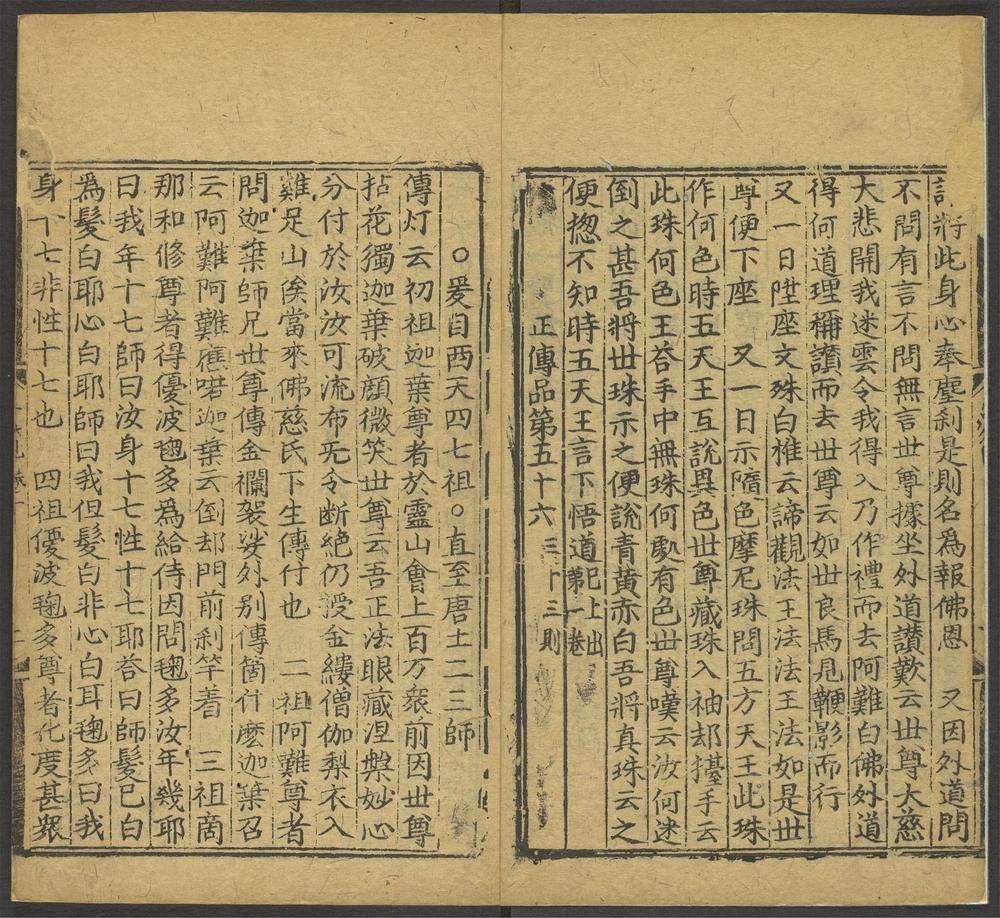 將此身心奉塵刹是則名爲報佛恩　又因外道問
不問有言不問無言世尊據坐外道讃歎云世尊大慈
大悲開我迷雲令我得入乃作禮而去阿難白佛外道
得何道理稱讃而去世尊云如世良馬見鞭影而行
又一日陞座文殊白椎云諦觀法王法法王法如是世
尊便下座　又一日示隨色摩尼珠問五方天王此珠
作何色時五天王互說異色世尊藏珠入袖却擡手云
此珠何色王荅手中無珠何處有色世尊嘆云汝何迷
倒之甚吾將世珠示之便說青黄赤白吾將真珠云之
便揔不知時五天王言下悟道已上出第一卷
正傳品第五十六　三十三則
○爰自西天四七祖○直至唐土二三師
傳灯云初祖迦葉尊者於靈山會上百万衆前因世尊
拈花獨迦葉破顔微笑世尊云吾正法眼藏涅槃妙心
分付於汝汝可流布无令断絶仍授金縷僧伽梨衣入
雞足山俟當來佛慈氏下生傳付也　二祖阿難尊者
問迦葉師兄世尊傳金襴袈裟外別傳箇什麽迦葉召
云阿難阿難應喏迦葉云倒却門前刹竿着　三祖商
那和修尊者得優波毱多爲給侍因問毱多汝年幾耶
曰我年十七師曰汝身十七性十七耶荅曰師髮已白
爲髮白耶心白耶師曰我但髮白非心白耳毱多曰我
身十七非性十七也　四祖優波毱多尊者化度甚衆